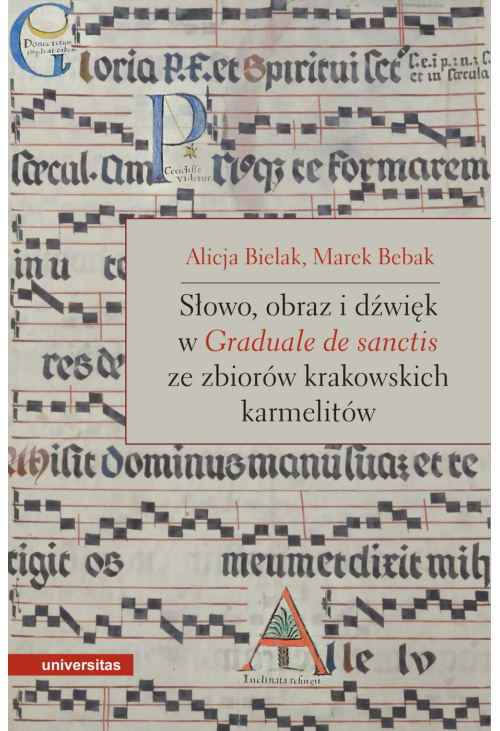 Donec totum
impleat orbem
Gloria P. F. et Spiritui sct͂o S. e. i. p. z. n. z. s.
et in sæcula
sæcul. Am Priusq; te formarem
Cecidisse
videtur
in u te
Alicja Bielak, Marek Bebak
Słowo, obraz i dźwięk
w Graduale de sanctis
ze zbiorów krakowskich
karmelitów
res de
Misit Dominus manū suaz et te
tigit os meum et dixit mih
Alle lv
Inclinata resurgit
universitas